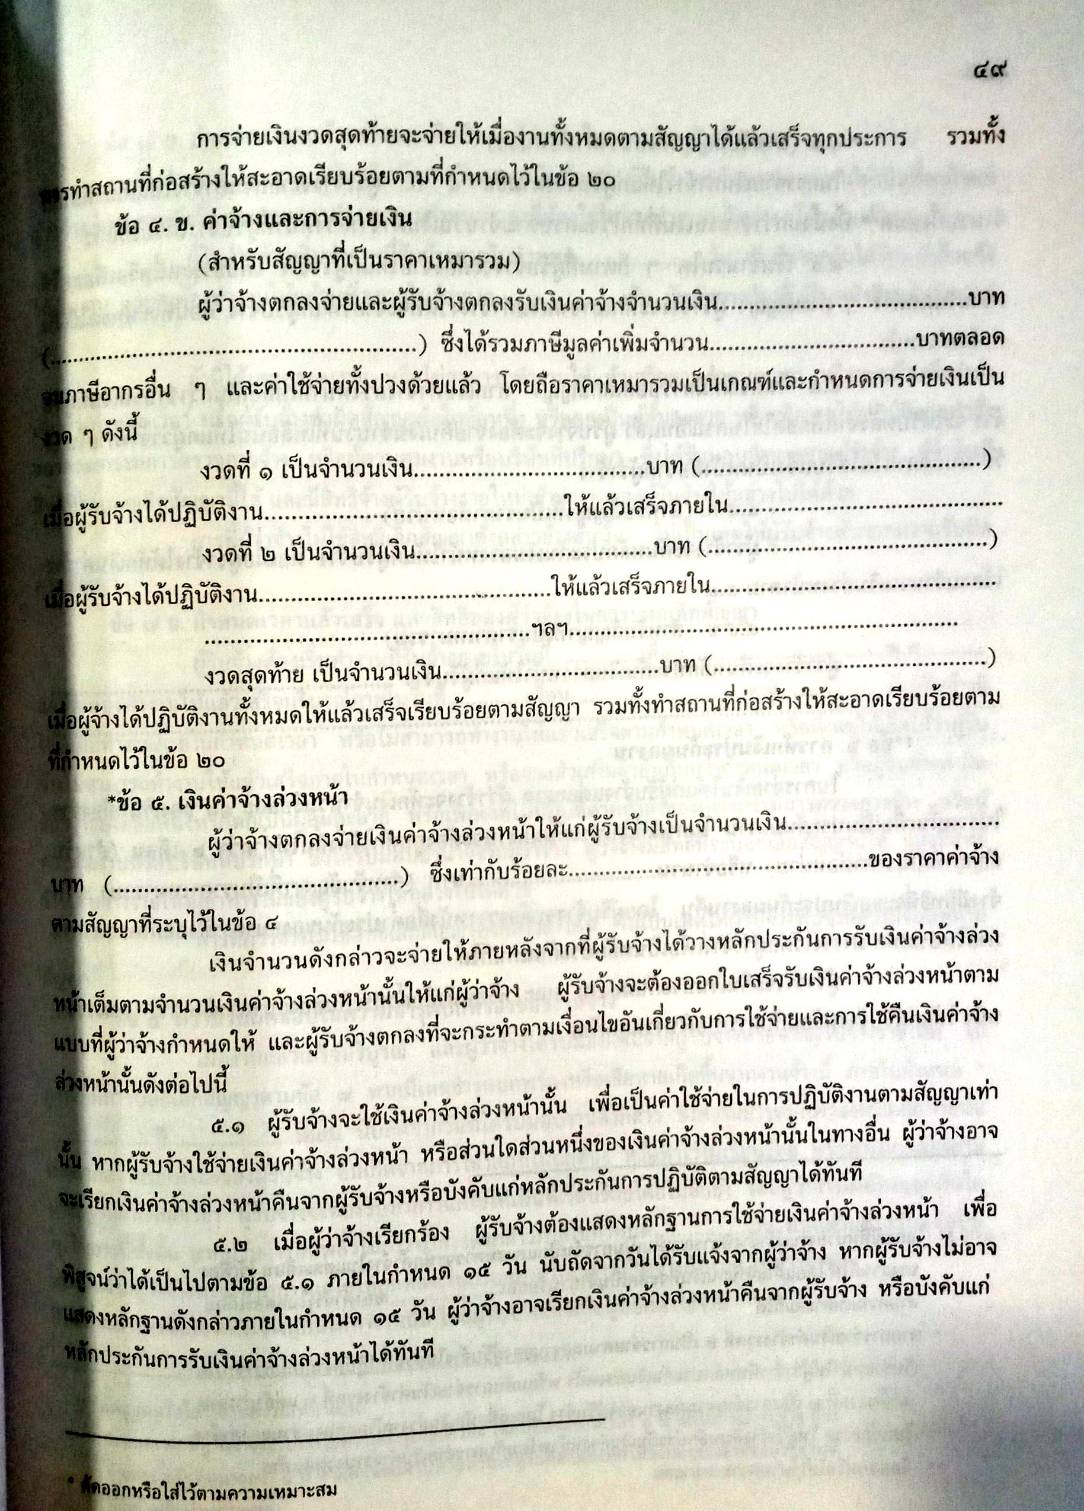 ๔๙
การจ่ายเงินงวดสุดท้ายจะจ่ายให้เมื่องานทั้งหมดตามสัญญาได้แล้วเสร็จทุกประการ รวมทั้ง
การทำสถานที่ก่อสร้างให้สะอาดเรียบร้อยตามที่กำหนดไว้ในข้อ ๒๐
ข้อ ๔. ข. ค่าจ้างและการจ่ายเงิน
(สำหรับสัญญาที่เป็นราคาเหมารวม)
ผู้ว่าจ้างตกลงจ่ายและผู้รับจ้างตกลงรับเงินค่าจ้างจำนวนเงิน........................................บาท
(............................................................) ซึ่งได้รวมภาษีมูลค่าเพิ่มจำนวน..................................บาทตลอด
จนภาษีอากรอื่น ๆ และค่าใช้จ่ายทั้งปวงด้วยแล้ว โดยถือราคาเหมารวมเป็นเกณฑ์และกำหนดการจ่ายเงินเป็น
งวด ๆ ดังนี้
งวดที่ ๑ เป็นจำนวนเงิน......................................บาท (..............................................)
เมื่อผู้รับจ้างได้ปฏิบัติงาน..................................................ให้แล้วเสร็จภายใน..............................................
งวดที่ ๒ เป็นจำนวนเงิน.......................................บาท (..............................................)
เมื่อผู้รับจ้างได้ปฏิบัติงาน.................................................ให้แล้วเสร็จภายใน................................................
......................................................ฯลฯ.................................................................
งวดสุดท้าย เป็นจำนวนเงิน....................................บาท (.............................................)
เมื่อผู้จ้างได้ปฏิบัติงานทั้งหมดให้แล้วเสร็จเรียบร้อยตามสัญญา รวมทั้งทำสถานที่ก่อสร้างให้สะอาดเรียบร้อยตาม
ที่กำหนดไว้ในข้อ ๒๐
*ข้อ ๕. เงินค่าจ้างล่วงหน้า
ผู้ว่าจ้างตกลงจ่ายเงินค่าจ้างล่วงหน้าให้แก่ผู้รับจ้างเป็นจำนวนเงิน...................................
บาท (................................................) ซึ่งเท่ากับร้อยละ..................................................ของราคาค่าจ้าง
ตามสัญญาที่ระบุไว้ในข้อ ๔
เงินจำนวนดังกล่าวจะจ่ายให้ภายหลังจากที่ผู้รับจ้างได้วางหลักประกันการรับเงินค่าจ้างล่วง
หน้าเต็มตามจำนวนเงินค่าจ้างล่วงหน้านั้นให้แก่ผู้ว่าจ้าง ผู้รับจ้างจะต้องออกใบเสร็จรับเงินค่าจ้างล่วงหน้าตาม
แบบที่ผู้ว่าจ้างกำหนดให้ และผู้รับจ้างตกลงที่จะกระทำตามเงื่อนไขอันเกี่ยวกับการใช้จ่ายและการใช้คืนเงินค่าจ้าง
ล่วงหน้านั้นดังต่อไปนี้
๕.๑ ผู้รับจ้างจะใช้เงินค่าจ้างล่วงหน้านั้น เพื่อเป็นค่าใช้จ่ายในการปฏิบัติงานตามสัญญาเท่า
นั้น หากผู้รับจ้างใช้จ่ายเงินค่าจ้างล่วงหน้า หรือส่วนใดส่วนหนึ่งของเงินค่าจ้างล่วงหน้านั้นในทางอื่น ผู้ว่าจ้างอาจ
จะเรียกเงินค่าจ้างล่วงหน้าคืนจากผู้รับจ้างหรือบังคับแก่หลักประกันการปฏิบัติตามสัญญาได้ทันที
๕.๒ เมื่อผู้ว่าจ้างเรียกร้อง ผู้รับจ้างต้องแสดงหลักฐานการใช้จ่ายเงินค่าจ้างล่วงหน้า เพื่อ
พิสูจน์ว่าได้เป็นไปตามข้อ ๕.๑ ภายในกำหนด ๑๕ วัน นับถัดจากวันได้รับแจ้งจากผู้ว่าจ้าง หากผู้รับจ้างไม่อาจ
แสดงหลักฐานดังกล่าวภายในกำหนด ๑๕ วัน ผู้ว่าจ้างอาจเรียกเงินค่าจ้างล่วงหน้าคืนจากผู้รับจ้าง หรือบังคับแก่
หลักประกันการรับเงินค่าจ้างล่วงหน้าได้ทันที
* ตัดออกหรือใส่ไว้ตามความเหมาะสม